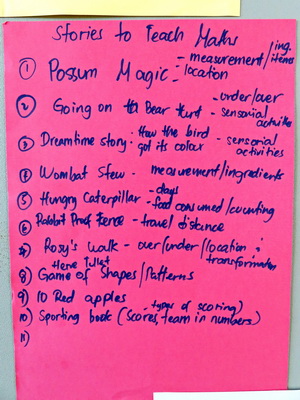 Stories to Teach Maths
① Possum Magic - measurement/ing. items
- location
② Going on a Bear Hunt - under/over
- sensorial activities
③ Dreamtime story - How the bird got its colour - sensorial activities
④ Wombat Stew - measurement/ingredients
⑤ Hungry Caterpillar - days
- food consumed/counting
⑥ Rabbit Proof Fence - travel distance
7) Rosy's walk - over/under/location & transformation
Herve Tullet
8) Game of Shapes/Patterns
9) 10 Red apples
10) Sporting book (scores, team in numbers)
- types of scoring)
11)